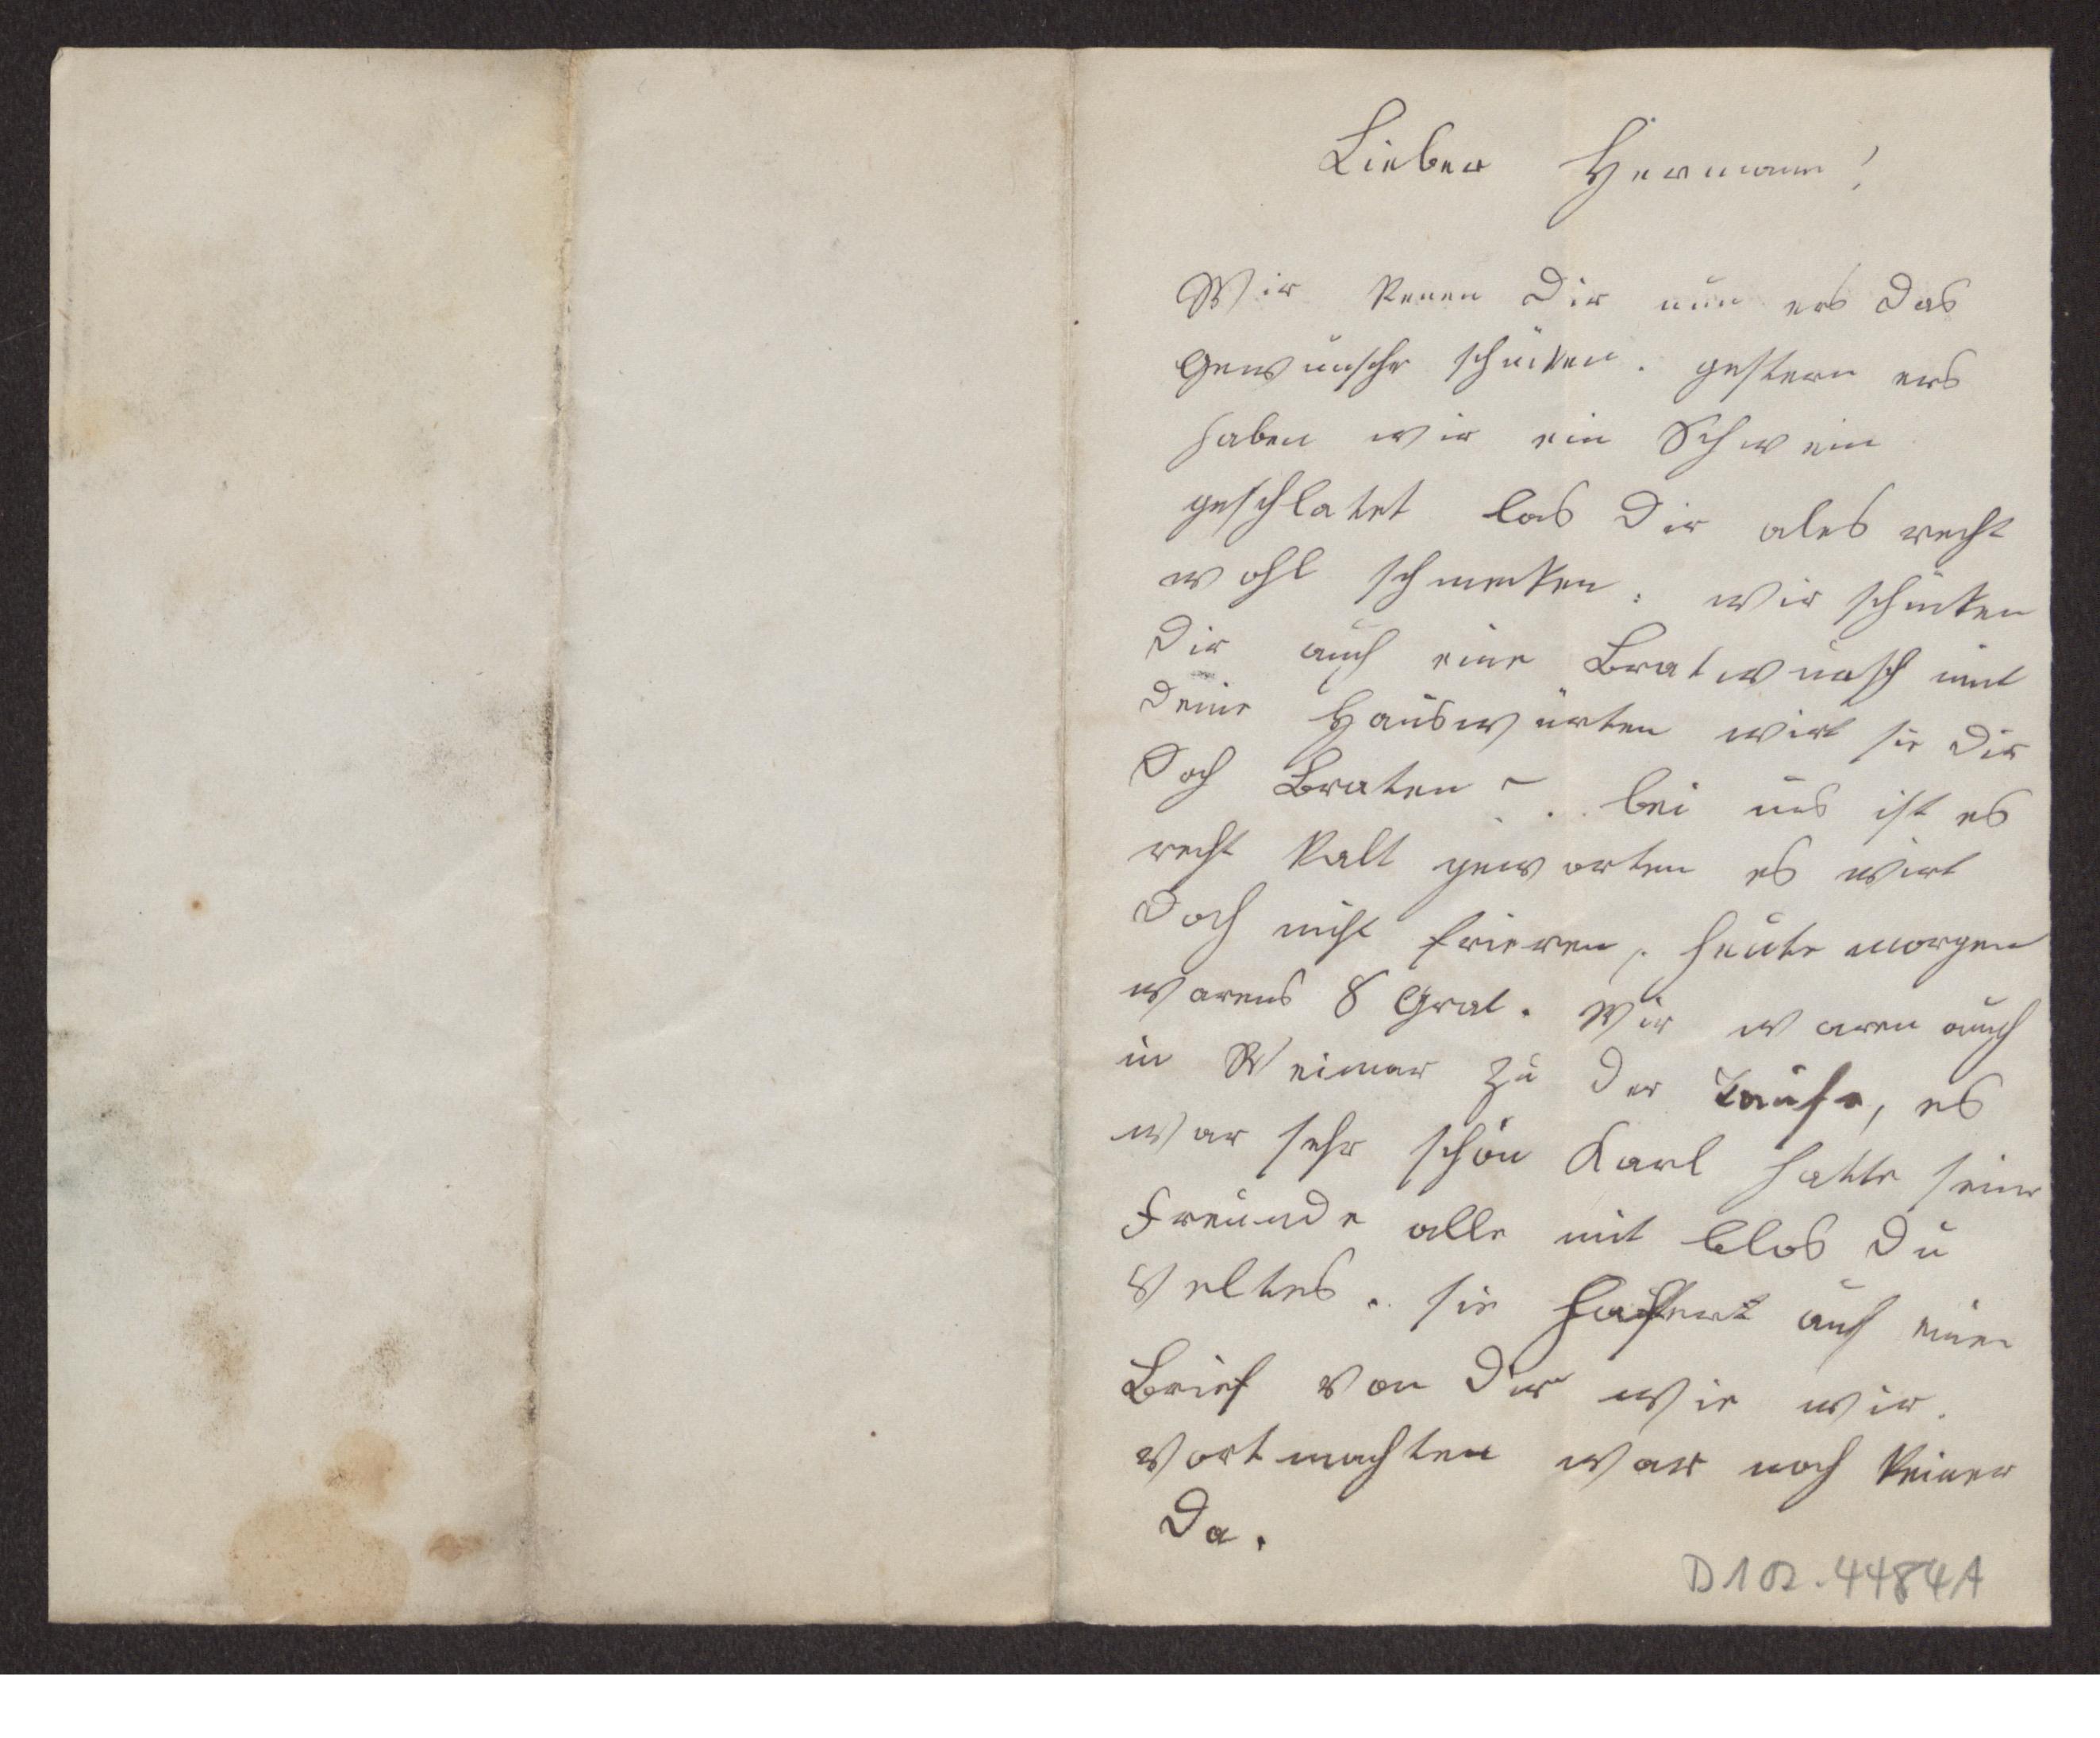 Lieber Hermann!
Wir kenen Dir nun ers das
Gewünsche schücken. gestern ers
haben wir ein Schwein
geschlatet las Dir ales recht
wohl schmecken. wir schücken
Dir auch eine Bratwursch mit
deine Hauswürten wirt sie Dir
Doch Braten. bei uns ist es
recht kalt geworten es wirt
Doch nicht frieren, heute morgen
warens 8 Grat. Wir waren auch
in Weimar zu der Taufe, es
war sehr schön Karl hatte seine
Freunde alle mit blos Du
veltes. sie auf einen
Brief von Dir wie wir.
vort machten war noch keiner
Da.
D102.4484A